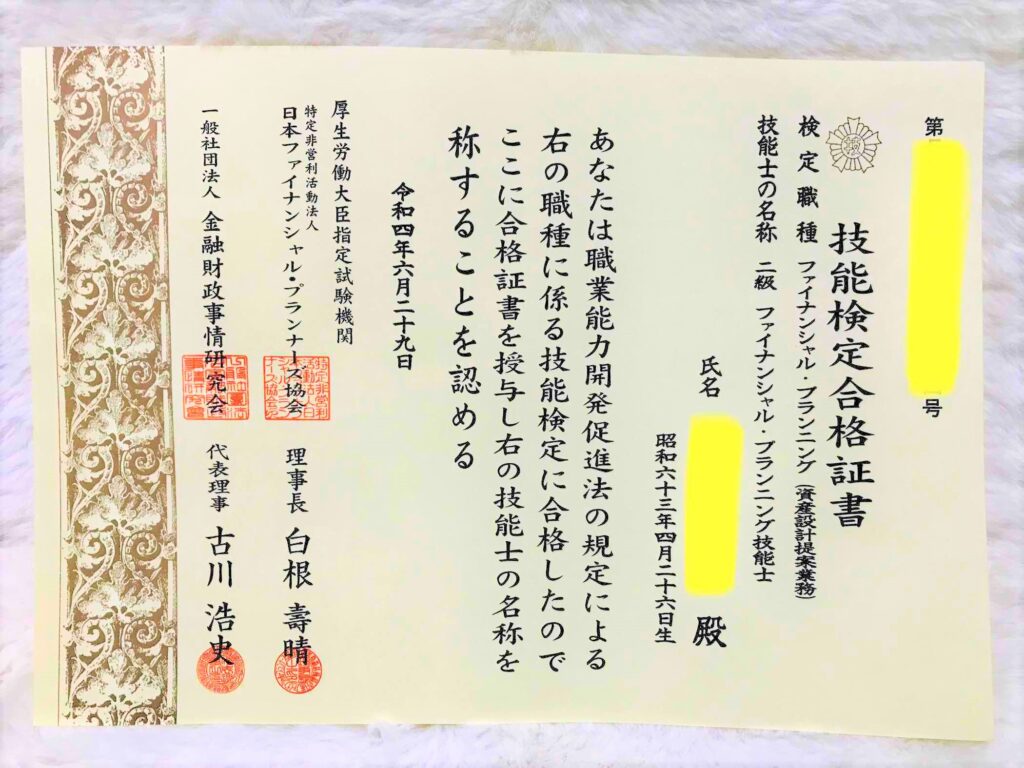 第
号
技能検定合格証書
検定職種 ファイナンシャル・プランニング(資産設計提案業務)
技能士の名称 二級 ファイナンシャル・プランニング技能士
氏名
殿
昭和六十三年四月二十六日生
あなたは職業能力開発促進法の規定による
右の職種に係る技能検定に合格したので
ここに合格証書を授与し右の技能士の名称を
称することを認める
令和四年六月二十九日
厚生労働大臣指定試験機関
特定非営利活動法人
日本ファイナンシャル・プランナーズ協会 理事長 白根 壽晴
一般社団法人 金融財政事情研究会 代表理事 古川 浩史